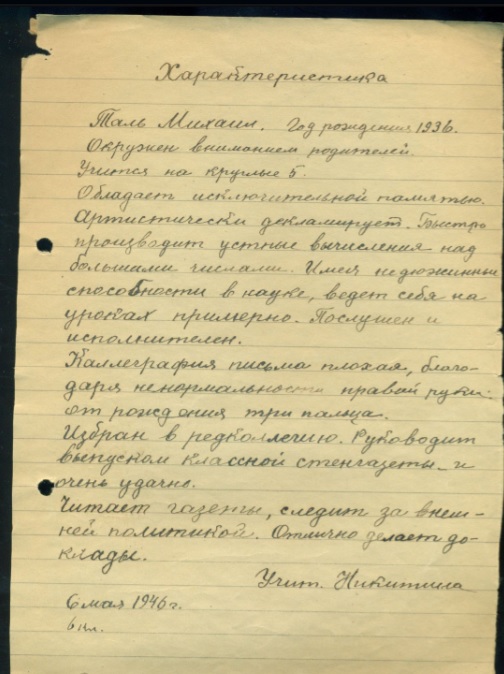 Характеристика
Таль Михаил. Год рождения 1936.
Окружен вниманием родителей.
Учится на круглые 5.
Обладает исключительной памятью.
Артистически декламирует. Быстро
производит устные вычисления над
большими числами. Имея недюжинные
способности в науке, ведет себя на
уроках примерно. Послушен и
исполнителен.
Каллеграфия письма плохая, благо-
даря ненормальности правой руки:
от рождения три пальца.
Избран в редколлегию. Руководит
выпуском классной стенгазеты и
очень удачно.
Читает газеты, следит за внеш-
ней политикой. Отлично делает до-
клады.
Учит. Никитина
6 мая 1946 г.
6 кл.